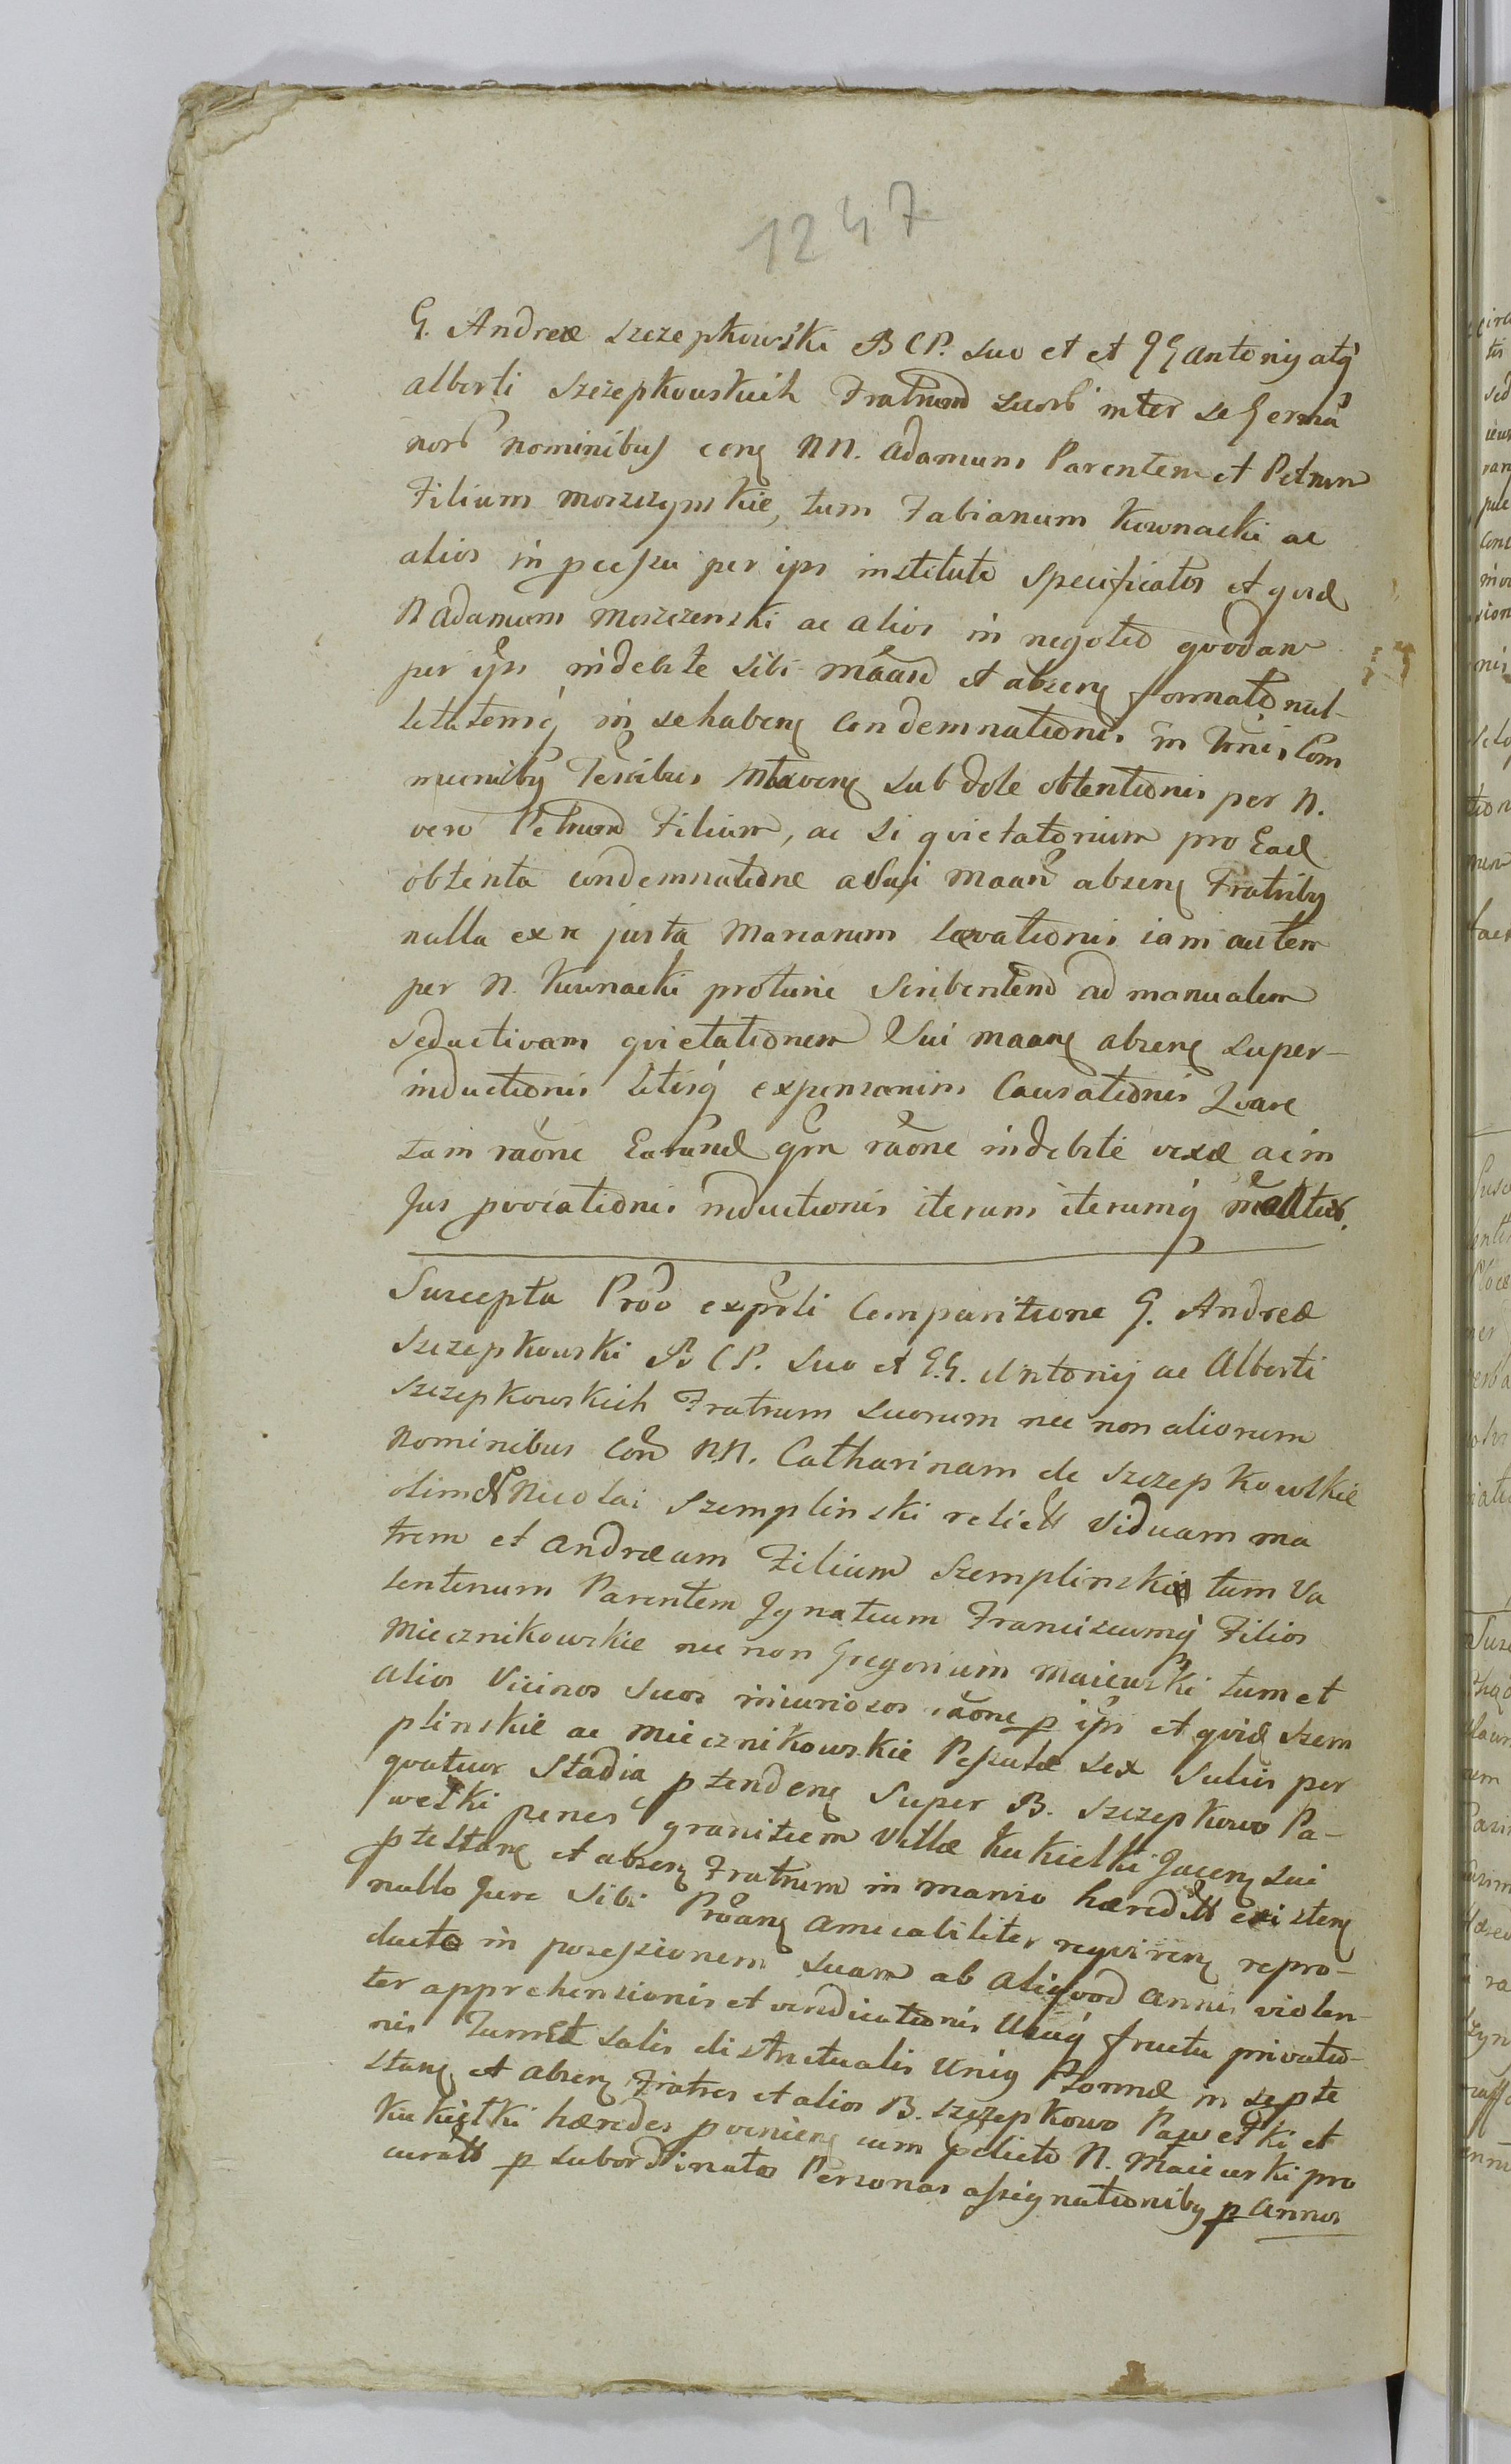 1247
G. Andreæ Szczepkowski B C P. suo et et G G Antonij atq
Alberti Szczepkowskich Fratrum suor inter se Germa
nor nominibus con NN. Adamum Parentem et Petrum
Filium Moszczynskie, tum Fabianum Kownacki ac
alios in pcessu per ips instituto specificatos et quid
N Adamum Moszczenski ac alios in negotio quodam
per ips indebite sibi maan et absen formato nul-
litatemq in se haben condemnationis in Trnis Com
munibq Terribus Mlaven subdole obtentionis per N.
vero Petrum Filium, ac si quietatorium pro Ead
obtenta condemnatione a Sui maan absen Fratribq
nulla ex re justa Mariarum Levationis iam autem
per N. Kownacki protunc Scribentem ad manualem
seductivam quietationem Sui maan absen super-
inductionis Litisq expensarum Causationis Quare
tam raone Earund qm raone indebite vexæ ac in
Jus pvocationis inductionis iterum iterumq
Suscepta Provo expsti Comparitione G. Andreæ
Szczepkowski B C P. suo et G.G. Antonij ac Alberti
Szczepkowskich Fratrum suorum nec non aliorum
Nominibus Con NN. Catharinam de Szczepkowskie
olim Nicolai Szemplinski relict Viduam ma
trem et Andræam Filium Szemplinskie tum Va
lentinum Parentem Ignatium Franciscumq Filios
Miecznikowskie nec non Gregorium Maiewski tum et
alios Vicinos suos iniuriosos raone p ips et quid Szem
plinskie ac Miecznikowskie Pessulæ sex Sulcis per
quatuor Stadia ptenden super B. Szczepkowo Pa-
wełki penes granitiem Villæ Kukiełki Jacen sui
ptestan et absen Fratrum in manso hæredit existen
nullo Jure Sibi Proan amicabiliter requiren repro-
ducto in possessionem suam ab aliquod annis violen-
ter apprehensionis et vindicationis Ususq fructu privatio-
nis Tum Et salis districtualis Uniq Tonnæ in se pte
stan et absen Fratres et alios B. Szczepkowo Pawełki et
Kukiełki hæredes pvenien cum pdicto N. Maiewski pro
curatt p subordinatos Personas assignationibq p annos